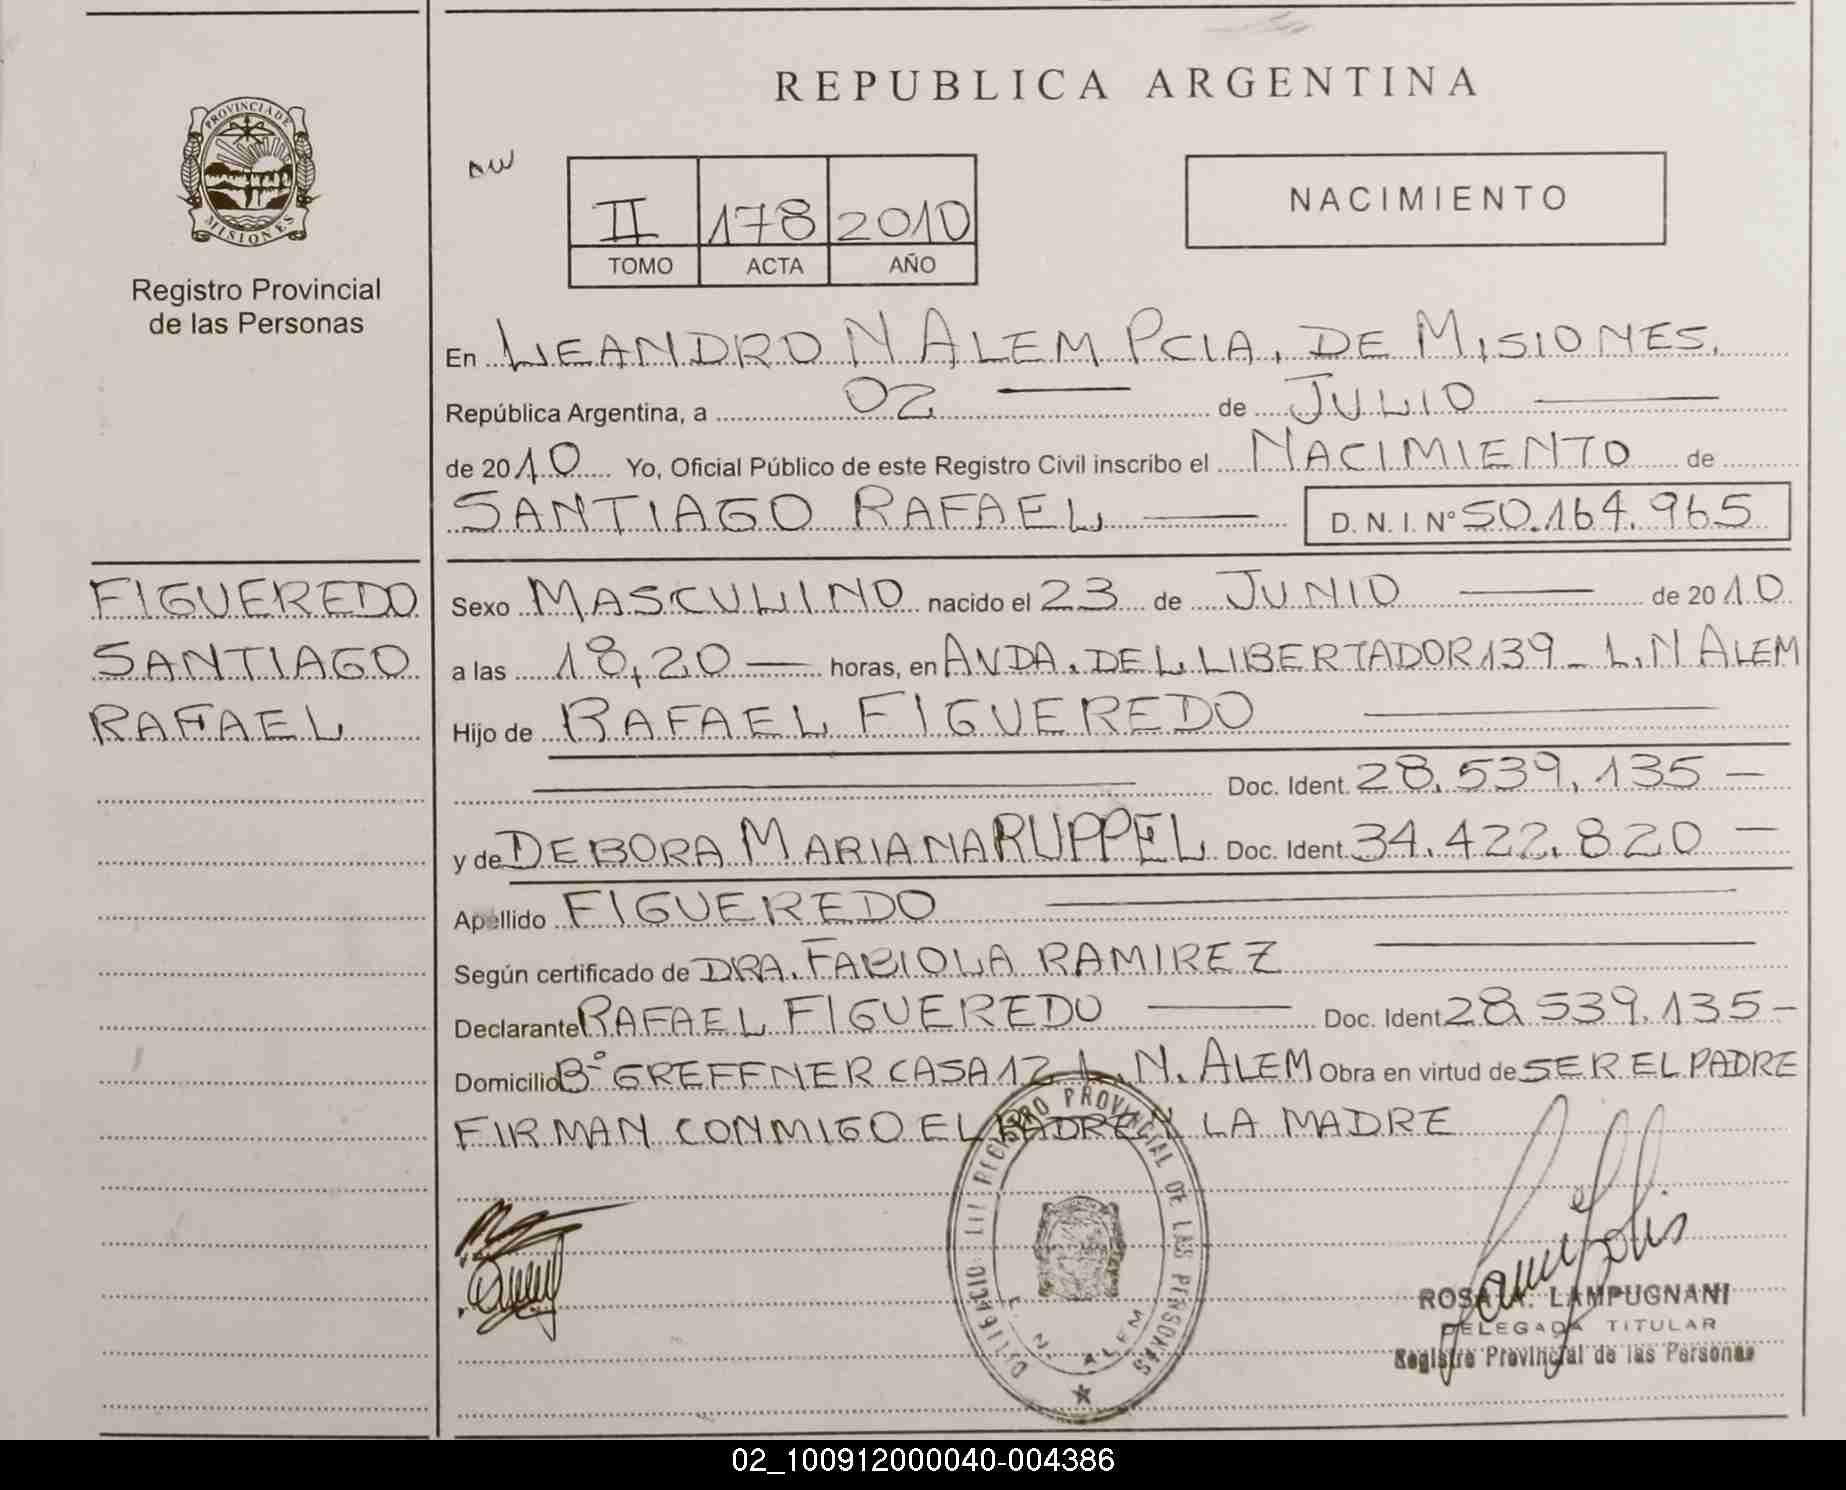 PROVINCIA DE
MISIONES
Registro Provincial
de las Personas
REPUBLICA ARGENTINA
II 178 2010
TOMO ACTA AÑO
NACIMIENTO
En LEANDRO N ALEM PCIA. DE MISIONES.
República Argentina, a 02 de JULIO
de 2010 Yo, Oficial Público de este Registro Civil inscribo el NACIMIENTO de
SANTIAGO RAFAEL D. N. I. Nº 50.164.965
FIGUEREDO
SANTIAGO
RAFAEL
Sexo MASCULINO nacido el 23 de JUNIO de 2010
a las 18,20 horas, en AVDA. DEL LIBERTADOR 139 - L. N ALEM
Hijo de RAFAEL FIGUEREDO
Doc. Ident. 28.539.135 -
y de DEBORA MARIANA RUPPEL Doc. Ident. 34.422.820 -
Apellido FIGUEREDO
Según certificado de DRA. FABIOLA RAMIREZ
Declarante RAFAEL FIGUEREDO Doc. Ident. 28.539.135 -
Domicilio Bº GREFFNER CASA 12 L. N. ALEM Obra en virtud de SER EL PADRE
FIRMAN CONMIGO EL PADRE Y LA MADRE
REGISTRO PROVINCIAL DE LAS PERSONAS
L. N. ALEM
ROSA A. LAMPUGNANI
DELEGADA TITULAR
Registro Provincial de las Personas
02_100912000040-004386